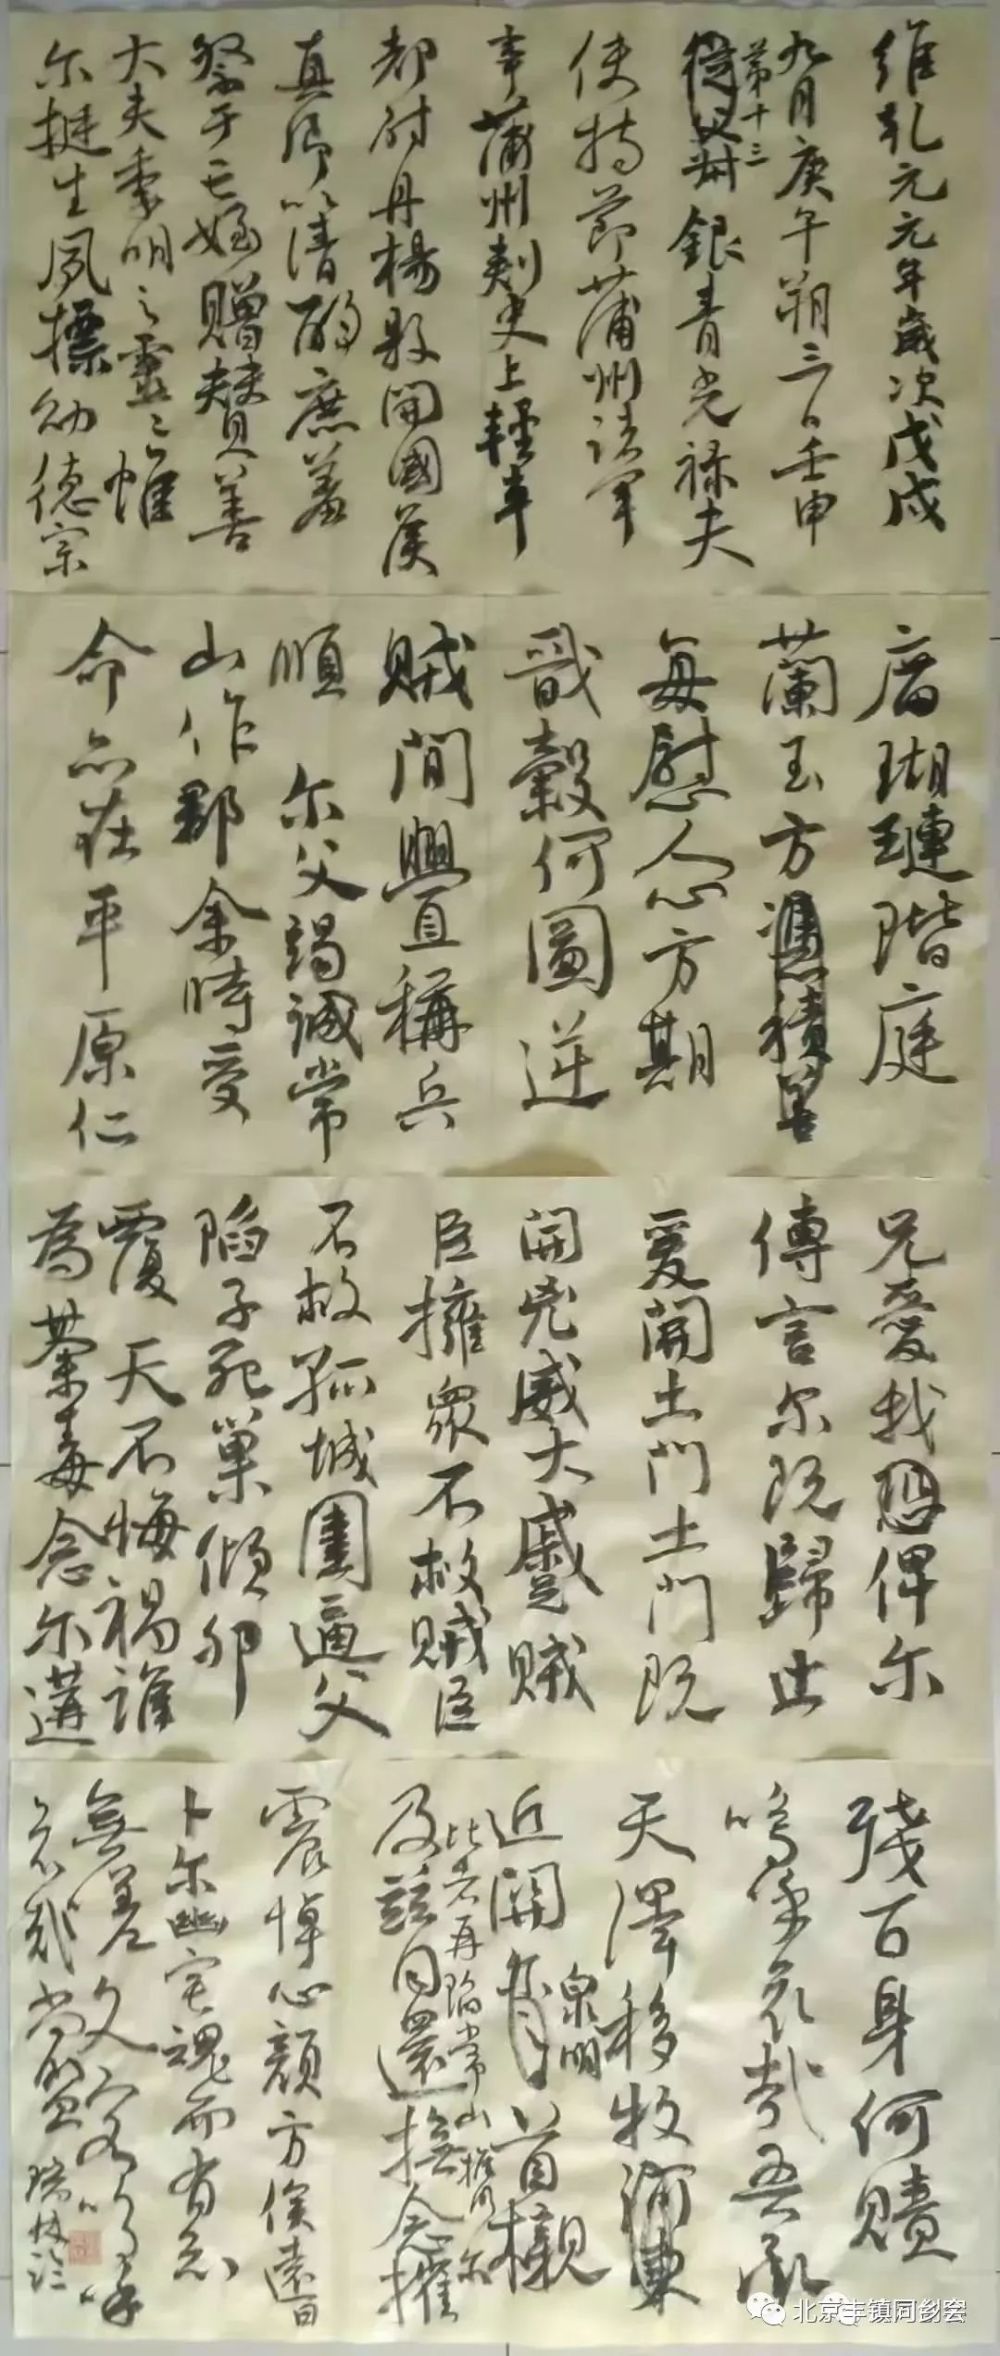 維乾元元年歲次戊戌
九月庚午朔三日壬申
第十三
銀青光祿夫
使持節蒲州諸軍
事蒲州刺史上輕車
都尉丹楊縣開國侯
真卿以清酌庶羞
祭于亡姪贈贊善
大夫季明之靈曰惟
尔挺生夙標幼德宗
廟瑚璉階庭
蘭玉方憑積善
每慰人心方期
戩穀何圖逆
賊間釁稱兵
順 尔父竭誠常
山作郡余時受
命亦在平原仁
兄愛我恐俾尔
傳言尔既歸止
爰開土門土門既
開兇威大蹙賊
臣擁眾不救賊臣
不救孤城圍逼父
陷子死巢傾卵
覆 天不悔禍誰
為荼毒念尔遘
殘百身何贖
嗚呼哀哉吾承
天澤移牧河東
近 泉明
比者再陷常山攜尔
開 首櫬
及茲同還撫念摧
震悼心顏方俟遠日
卜尔幽宅魂而有知
無嗟久客嗚呼
哀哉尚饗 臨
北京丰镇同乡会